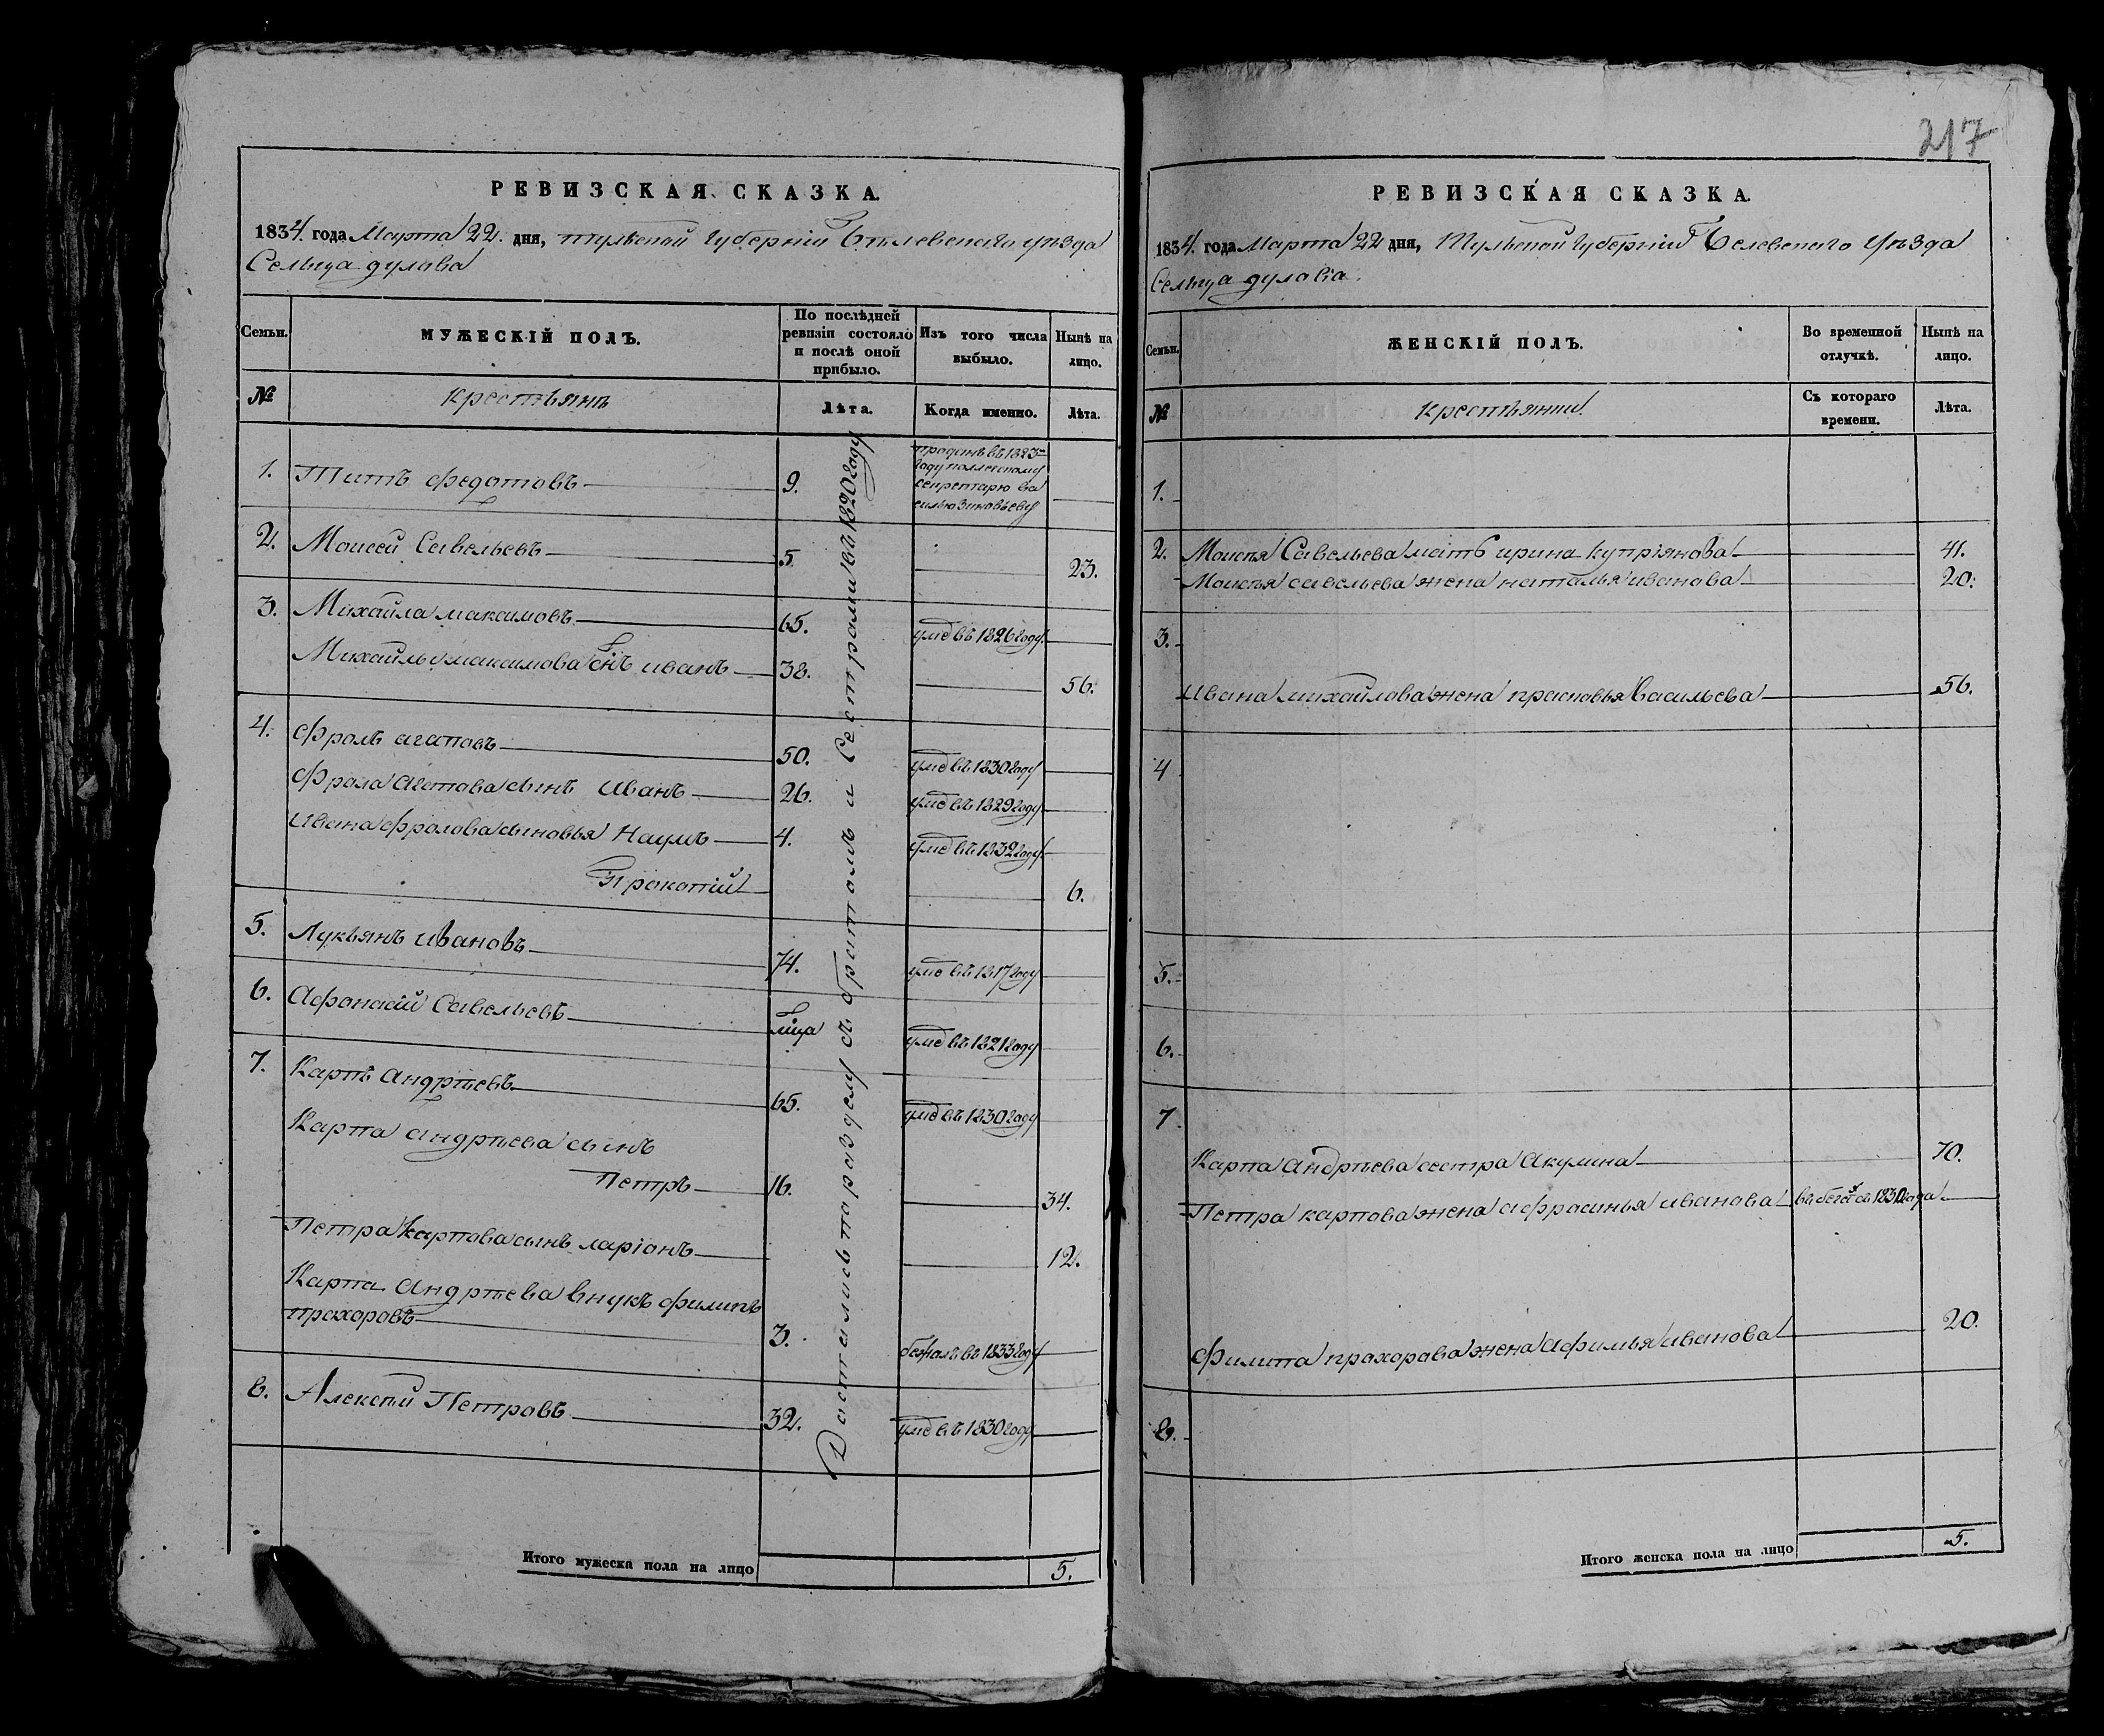 РЕВИЗСКАЯ СКАЗКА.
1834. года Марта 22. дня, тульской Губерніи Бѣлевскаго уѣзда
Сельца дулава
Семьи.
МУЖЕСКІЙ ПОЛЪ.
По послѣдней ревизіи состояло и послѣ оной прибыло.
Изъ того числа выбыло.
Нынѣ на лицо.
№
крестьянъ
Лѣта.
Когда именно.
Лѣта.
Достались по разделу съ братомъ и сестрами въ 1820 году
1. Титъ Федотовъ 9. проданъ въ 1823 м
году коллескому
секретарю Ва
силью Зиновьеву
2. Моисей Савельевъ 5 23.
3. Михайла максимовъ 65. умѣ въ 1826 году.
Михайлы максимова сн̃ъ иванъ 38. 56.
4. Фролъ агаповъ 50. умѣ въ 1830 году
Фрола Агапова сынъ Иванъ 26. умѣ въ 1829 году
Ивана Фролова сыновья Наумъ 4. умѣ въ 1832 году.
Прокопій 6.
5. Лукьянъ ивановъ 74. умѣ въ 1817 году
6. Афонасій Савельевъ умѣ въ 1821 году
7. Карпъ Андрѣевъ 65. умѣ въ 1830 году
Карпа андрѣева сынъ
Петръ 16. 34.
Петра Карпова сынъ ларіонъ 12.
Карпа Андрѣева внукъ филипъ
прохоровъ 3. бежалъ въ 1833 году
8. Алексѣй Петровъ 32. умѣ въ 1830 году
Итого мужеска пола на лицо 5.
217
РЕВИЗСКАЯ СКАЗКА.
1834. года Марта 22 дня, Тульской Губерніи Белевскаго уѣзда
Сельца дулова.
Семьи.
ЖЕНСКІЙ ПОЛЪ.
Во временной отлучкѣ.
Нынѣ на лицо.
№
крестьянки
Съ котораго времени.
Лѣта.
1.
2. Моисѣя Савельева мать ирина купріянова 41.
Моисѣя савельева жена наталья иванова 20.
3.
Ивана михайлова жена прасковья Васильева 56.
4
5.
6.
7
Карпа Андрѣева сестра Акулина 70.
Петра карпова жена афросинья иванова въ бегахъ съ 1830 года
Филипа прохорова жена Афимья иванова 20.
8.
Итого женска пола на лицо 5.